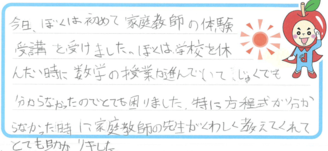 今日、ぼくは初めて家庭教師の体験
受講を受けました。ぼくは学校を休
んだ時に数学の授業が進んでいて、じゅくでも
分からなかったのでとても困りました。特に方程式が分か
らなかった時に家庭教師の先生がくわしく教えてくれて
とても助かりました。